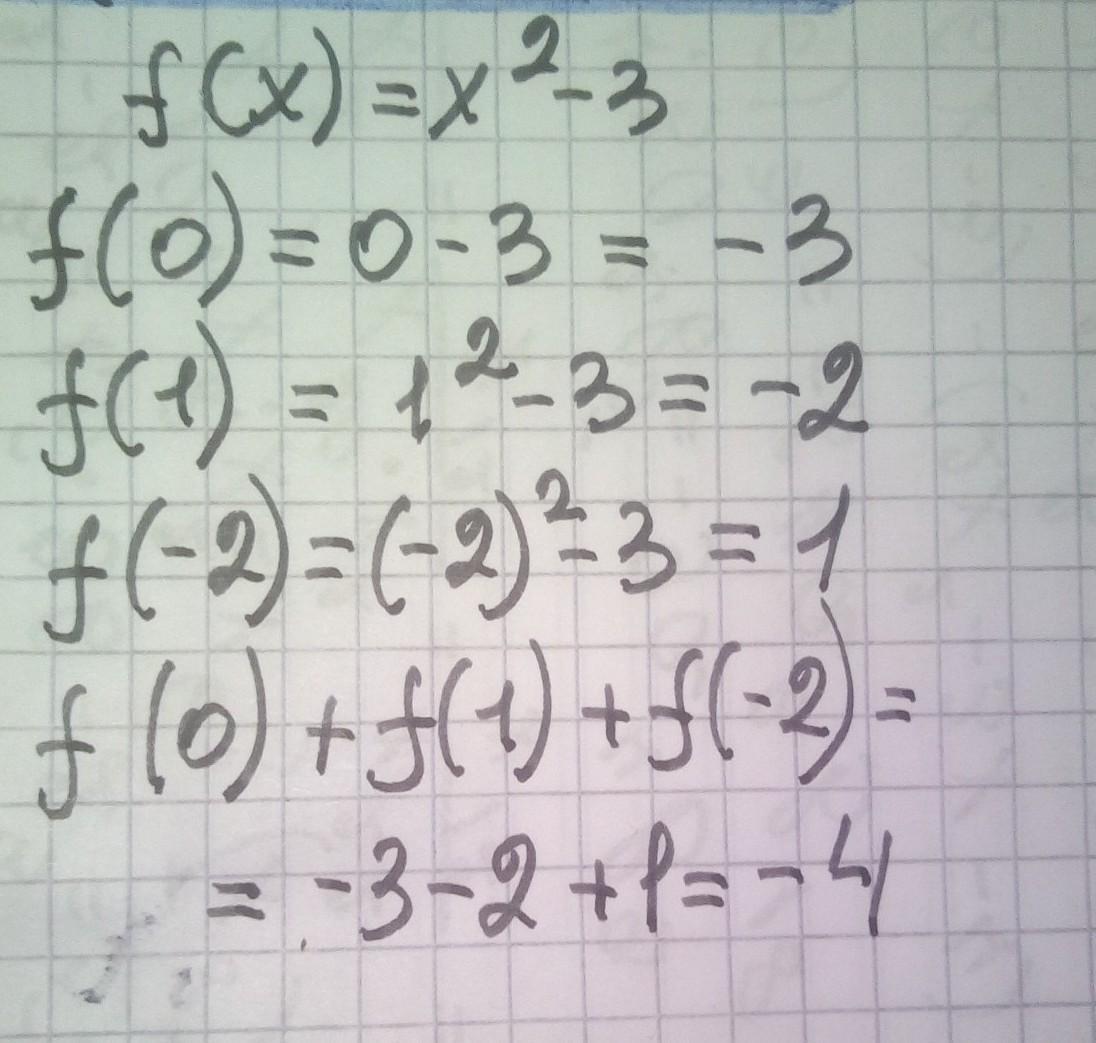 f(x) = x² - 3
f(0) = 0 - 3 = -3
f(1) = 1² - 3 = -2
f(-2) = (-2)² - 3 = 1
f(0) + f(1) + f(-2) =
= -3 - 2 + 1 = -4